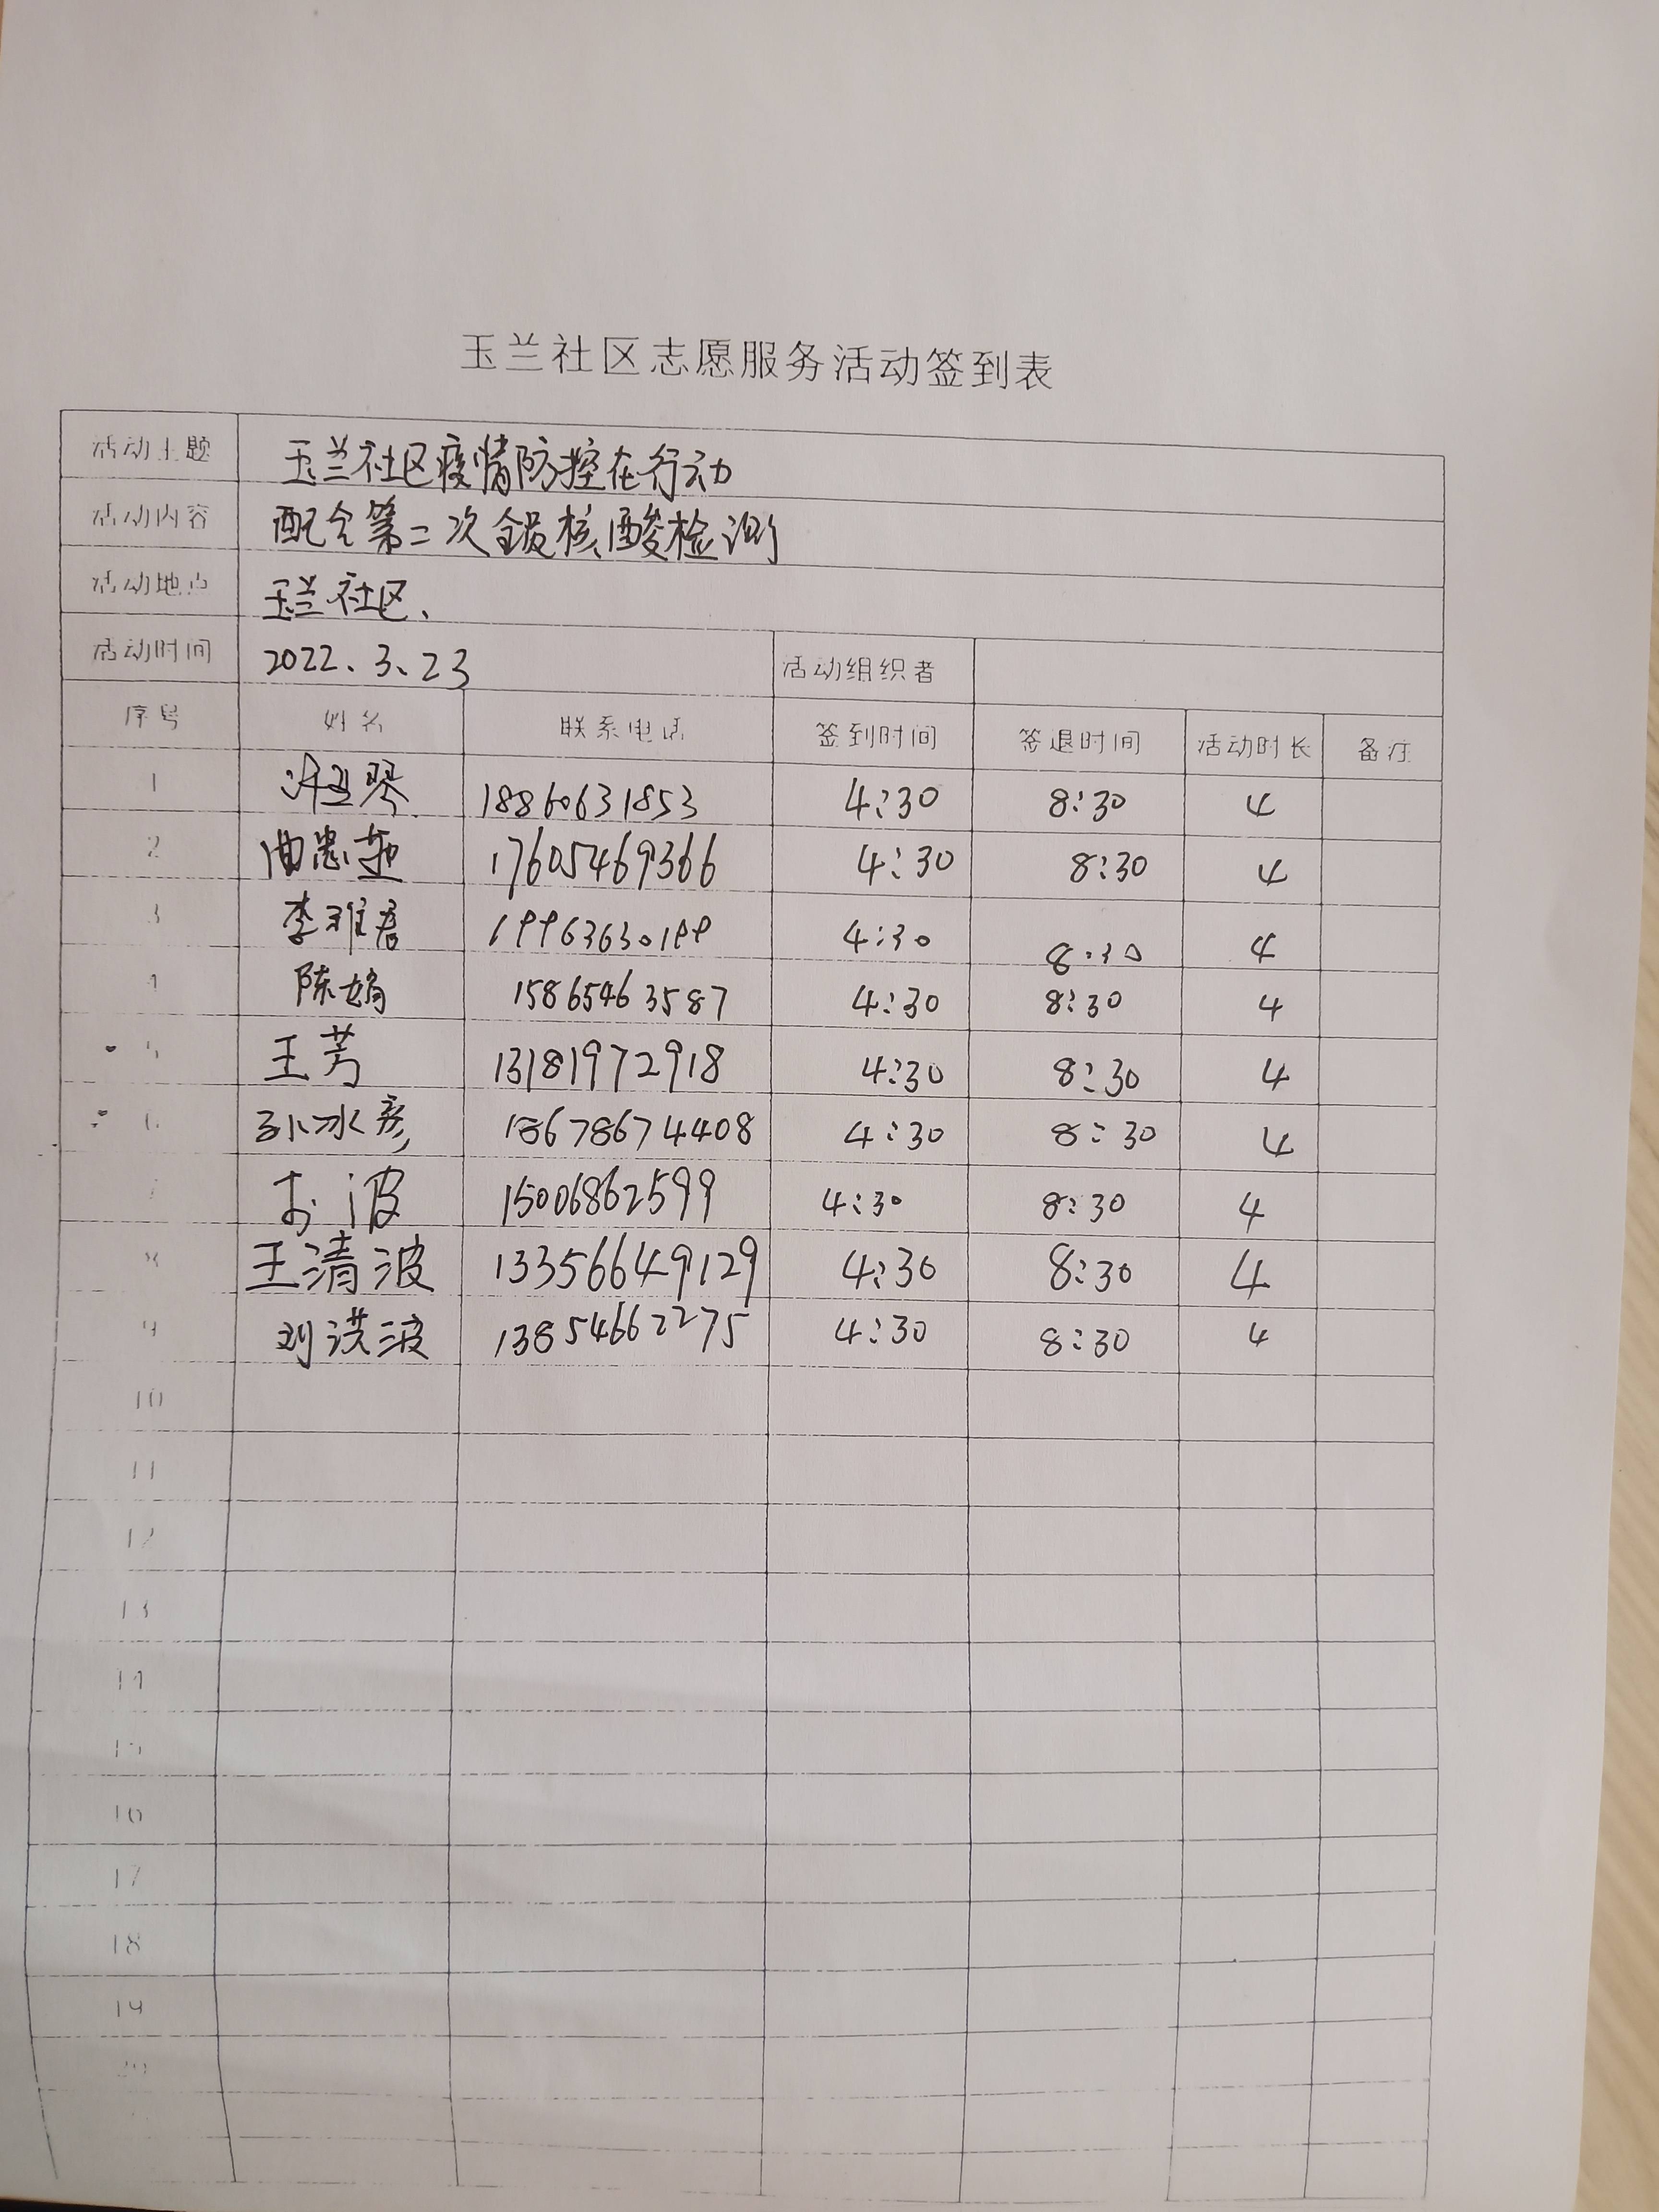 玉兰社区志愿服务活动签到表
活动主题 玉兰社区疫情防控在行动
活动内容 配合第二次全员核酸检测
活动地点 玉兰社区、
活动时间 2022、3、23 活动组织者
序号 姓名 联系电话 签到时间 签退时间 活动时长 备注
1 18860631853 4:30 8:30 4
2 17605469366 4:30 8:30 4
3 李雅君 19963630199 4:30 8:30 4
4 陈娟 15865463587 4:30 8:30 4
5 王芳 13181972918 4:30 8:30 4
6 孙冰彦 18678674408 4:30 8:30 4
7 波 15006862599 4:30 8:30 4
8 王清波 13356649129 4:30 8:30 4
9 刘洪波 13854662275 4:30 8:30 4
10
11
12
13
14
15
16
17
18
19
20